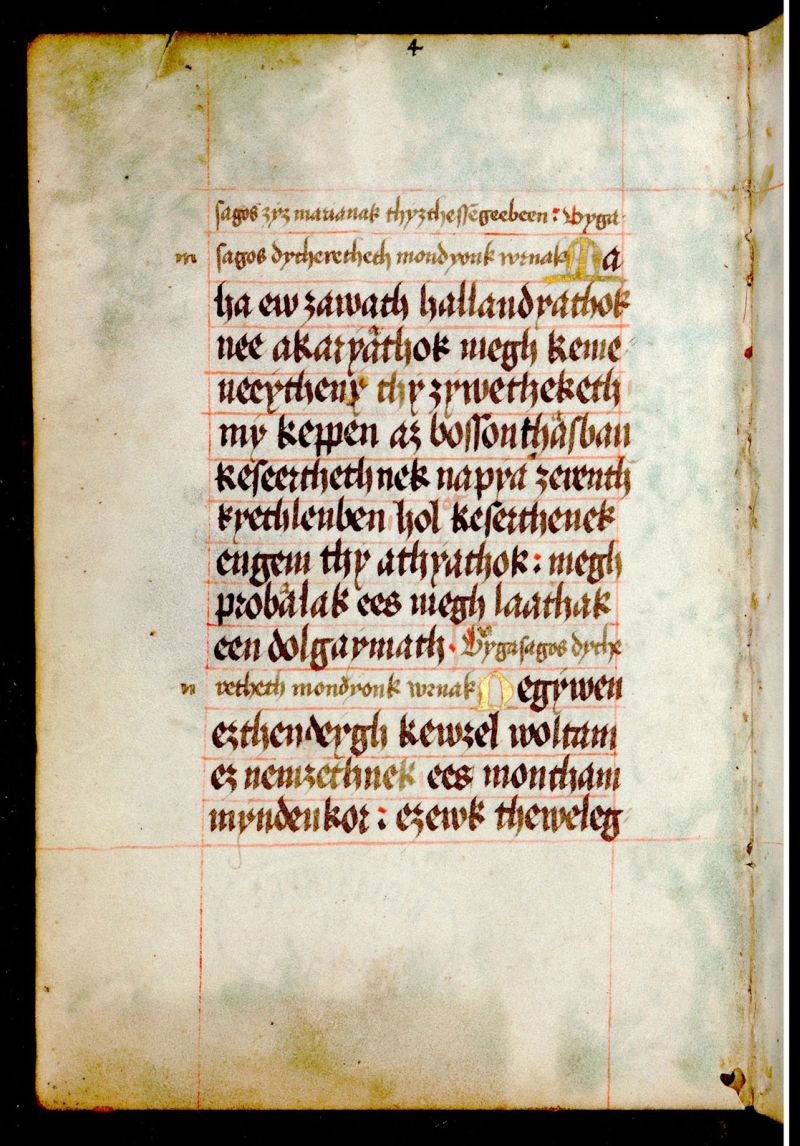 4
sagos zyz marianak thyzthessēgeebeen : Byga
m sagos dycherethech mondyonk wrnak Ma
ha ew zawath hallandyathok
nee akaryáthok megh keme
neeytheny thy zywetheketh
my keppen az bossonthásban
keseerthethnek napya zerenth
kyethlenben hol keserthenek
engem thy athyathok : megh
probálak ees megh laathak
een dolgaymath · Bygasagos dyche
n retheth mondyonk wrnak Negywen
ezthendeygh kewzel woltam
ez nemzethnek ees montham
myndenkor : ezewk theweleg